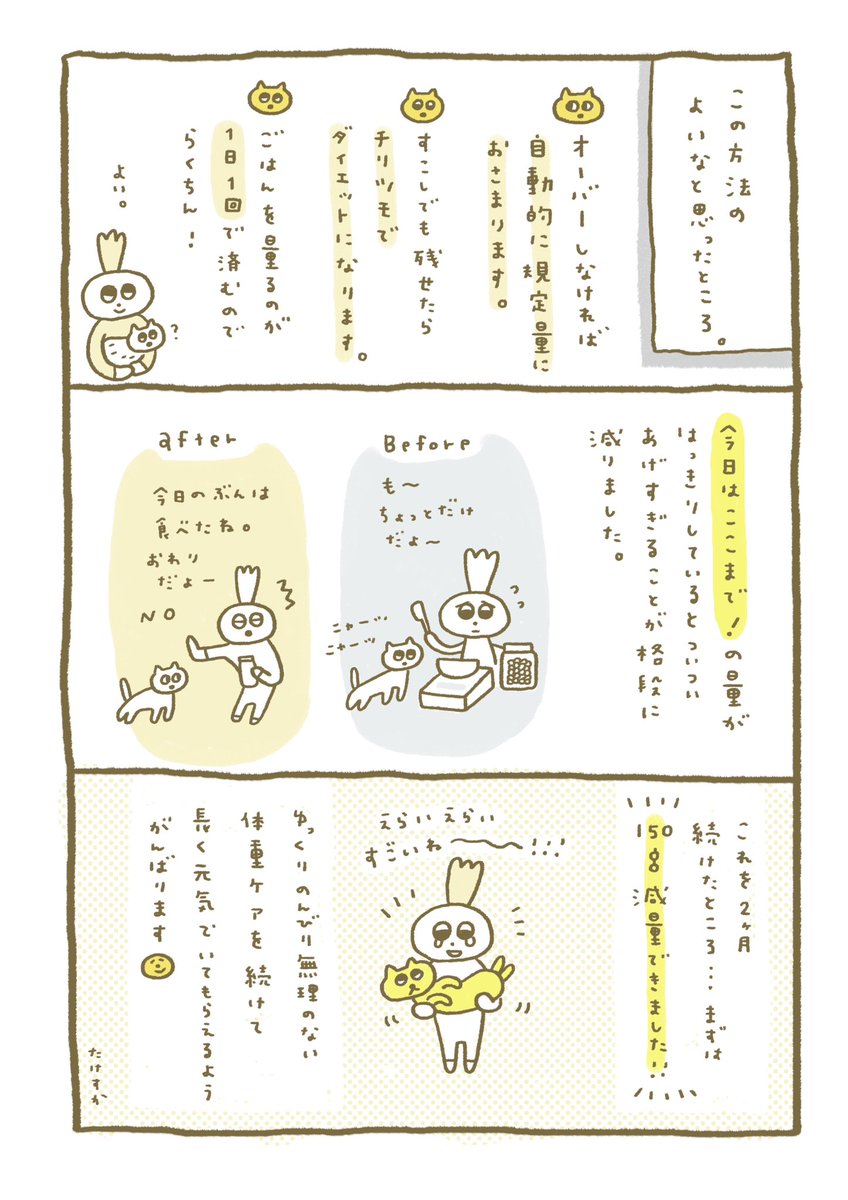 この方法の
よいなと思ったところ。
オーバーしなければ
自動的に規定量に
おさまります。
すこしでも残せたら
チリツモで
ダイエットになります。
ごはんを量るのが
1日1回で済むので
らくちん!
よい。
?
今日はここまで!の量が
はっきりしているとついつい
あげすぎることが格段に
減りました。
Before
も〜
ちょっとだけ
だよ〜
ニャーッ
ニャーッ
after
今日のぶんは
食べたね。
おわり
だよー
NO
これを2ヶ月
続けたところ...まずは
150g減量できました!!
えらいえらい
すごいね〜〜!!!
ゆっくりのんびり無理のない
体重ケアを続けて
長く元気でいてもらえるよう
がんばります
たけすか